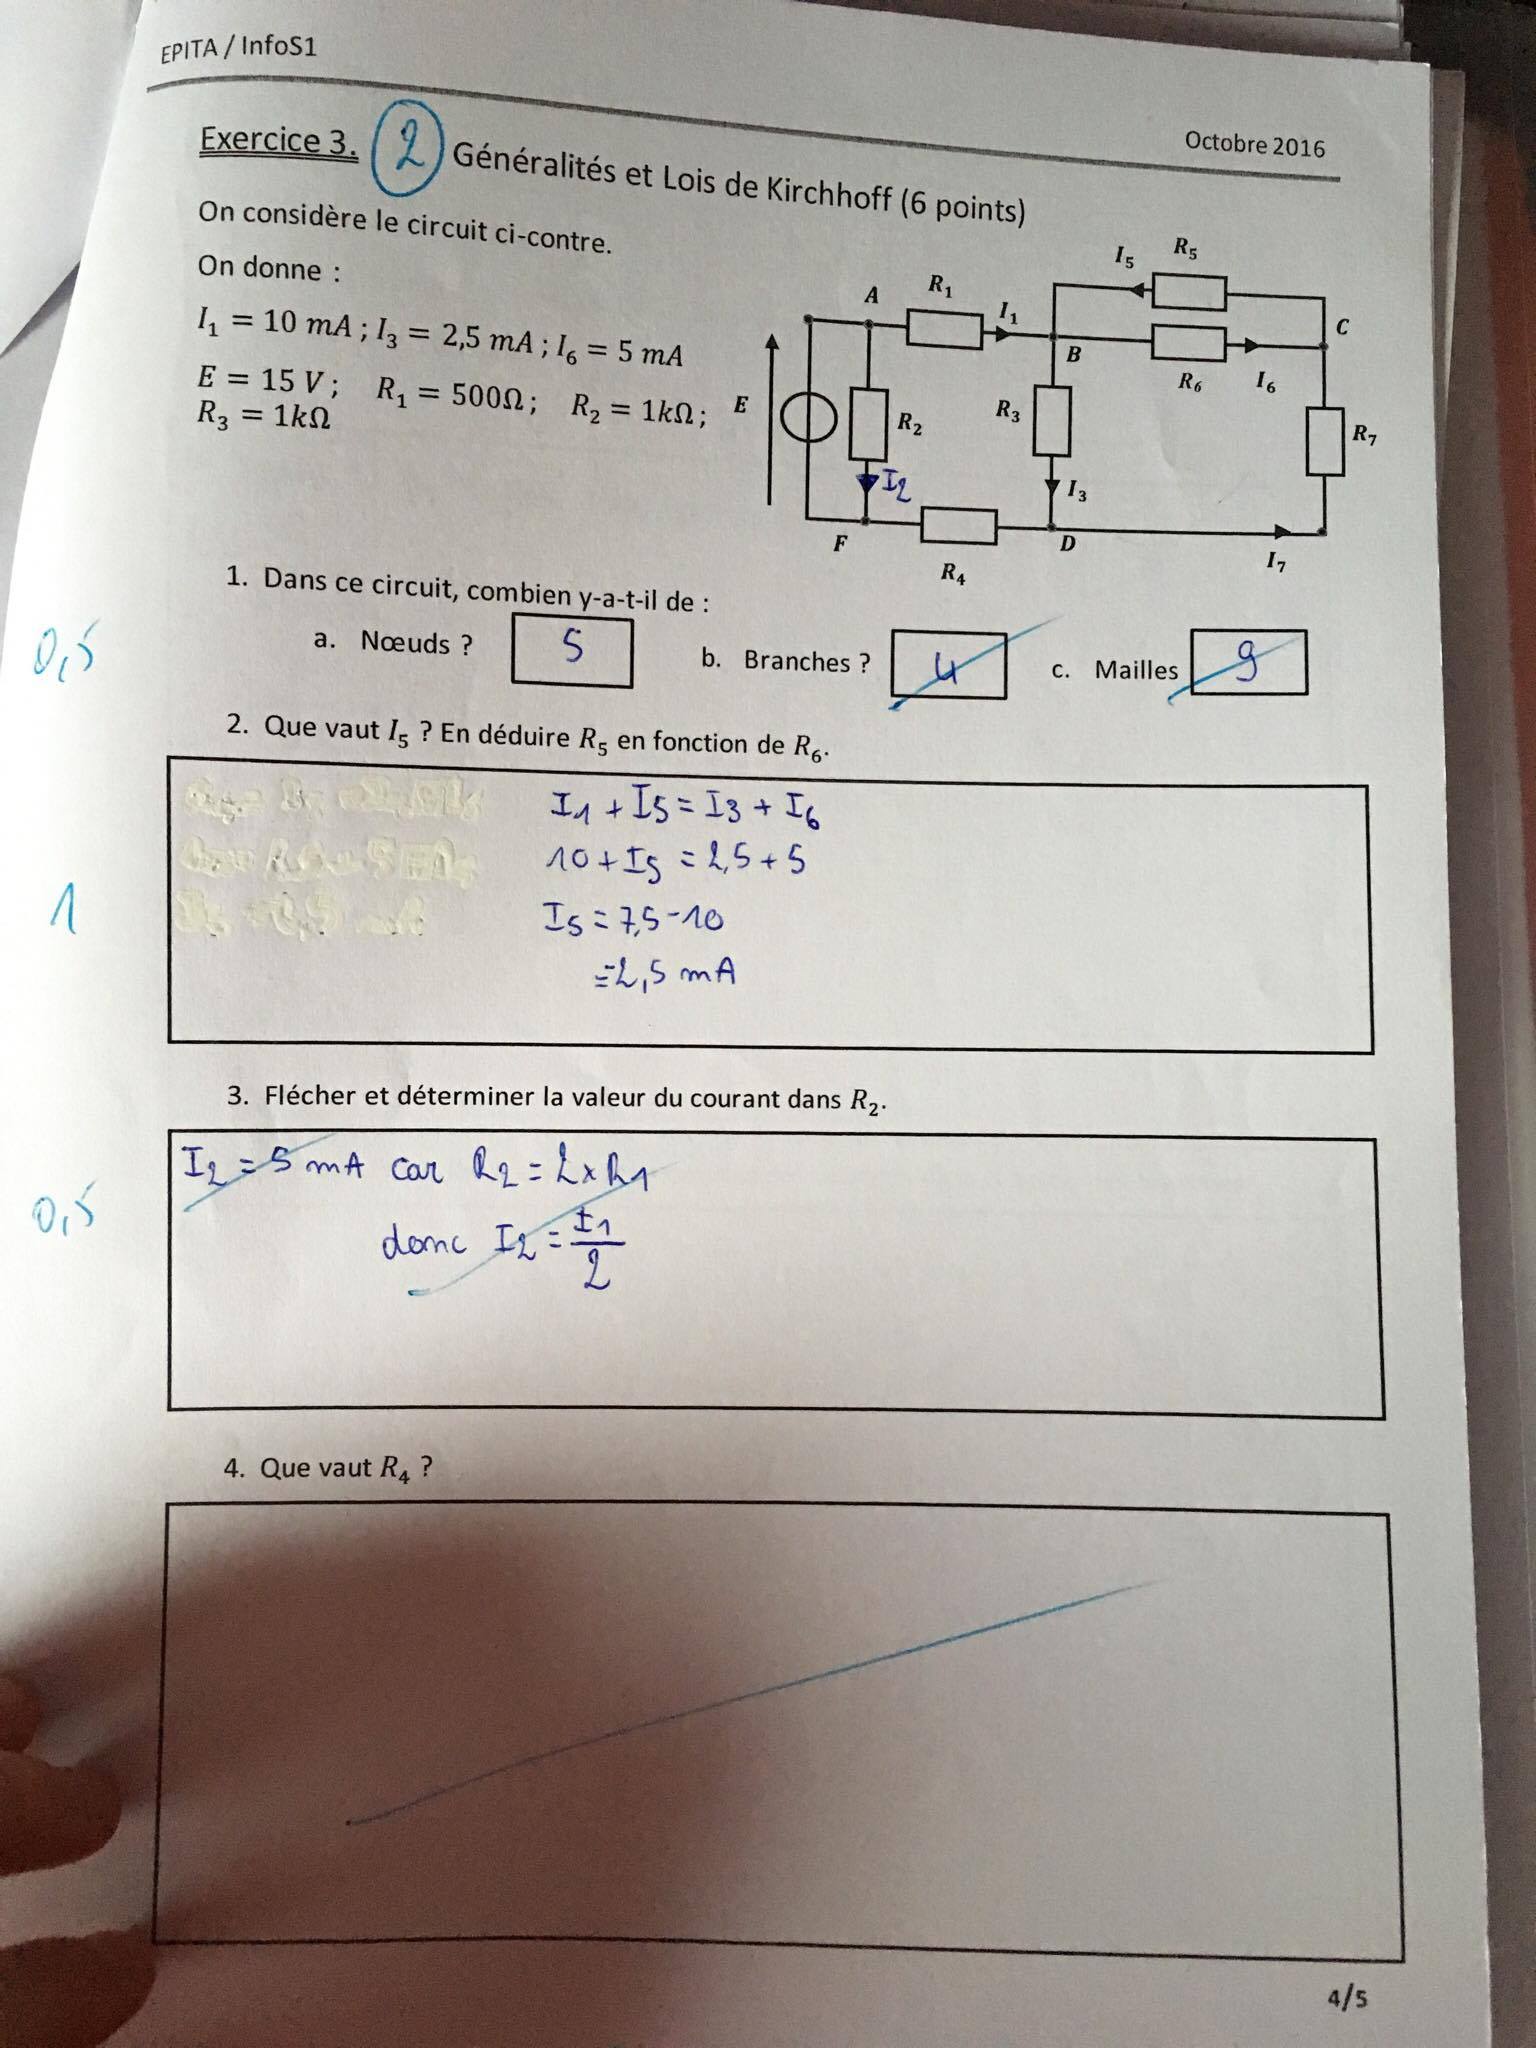 EPITA / InfoS1
Octobre 2016
Exercice 3. 2 Généralités et Lois de Kirchhoff (6 points)
On considère le circuit ci-contre.
On donne :
I₁ = 10 mA ; I₃ = 2,5 mA ; I₆ = 5 mA
E = 15 V ; R₁ = 500Ω ; R₂ = 1kΩ ;
R₃ = 1kΩ
I₅ R₅
A R₁ I₁
C
B
R₆ I₆
E R₂ R₃ R₇
I₂ I₃
F D
R₄ I₇
1. Dans ce circuit, combien y-a-t-il de :
0,5
a. Nœuds ? 5 b. Branches ? 4 c. Mailles 9
2. Que vaut I₅ ? En déduire R₅ en fonction de R₆.
I1 + I5 = I3 + I6
10 + I5 = 2,5 + 5
1
I5 = 7,5 - 10
= 2,5 mA
3. Flécher et déterminer la valeur du courant dans R₂.
I2 = 5 mA car R2 = 2 x R1
0,5
donc I2 = I1/2
4. Que vaut R₄ ?
4/5